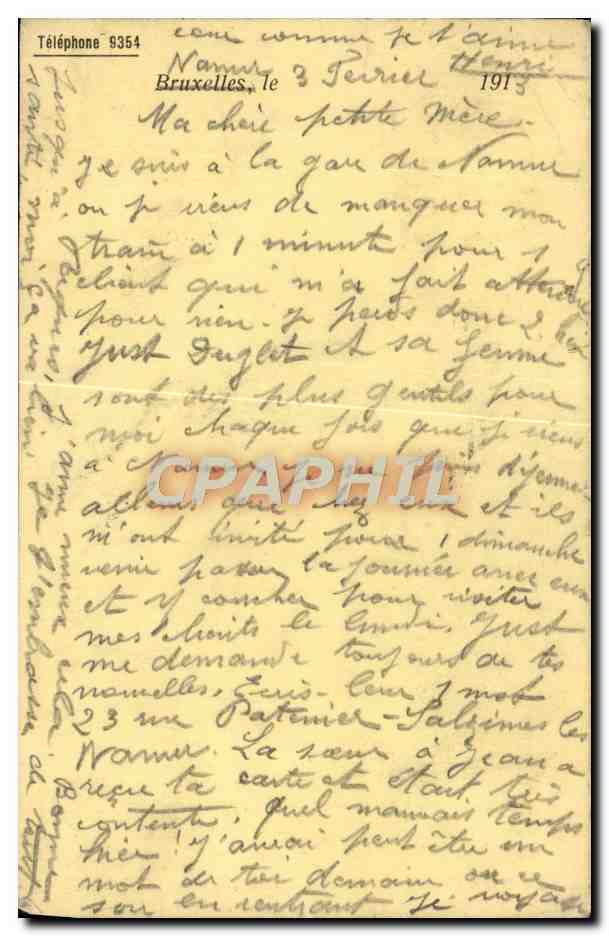 Téléphone 9354
Namur
Bruxelles, le 3 Fevrier 1913
Ma chère petite Mère -
Je suis à la gare de Namur
ou je viens de manquer mon
train à 1 minute pour 1
client qui m'a fait attendre
pour rien - Je perds donc 2
Just et sa femme
sont des plus gentils pour
moi chaque fois que je viens
à Namur je ne puis déjeuner
ailleurs que chez eux et ils
m'ont invité pour 1 dimanche
venir passer la journée avec eux
et y coucher pour visiter
mes clients le lundi. Just
me demande toujours de tes
nouvelles. Ecris-leur 1 mot
23 rue Patenier - Salzinnes les
Namur. La sœur à Jean a
reçu ta carte et était très
contente. Quel mauvais temps
hier! J'aurai peut être un
mot de toi demain ou ce
soir en rentrant. Je voyage
jusqu'à J'aime mieux cela Bonne
santé, moi ça va bien. Je t'embrasse de tout
cœur comme je t'aime
Henri
CPAPHIL